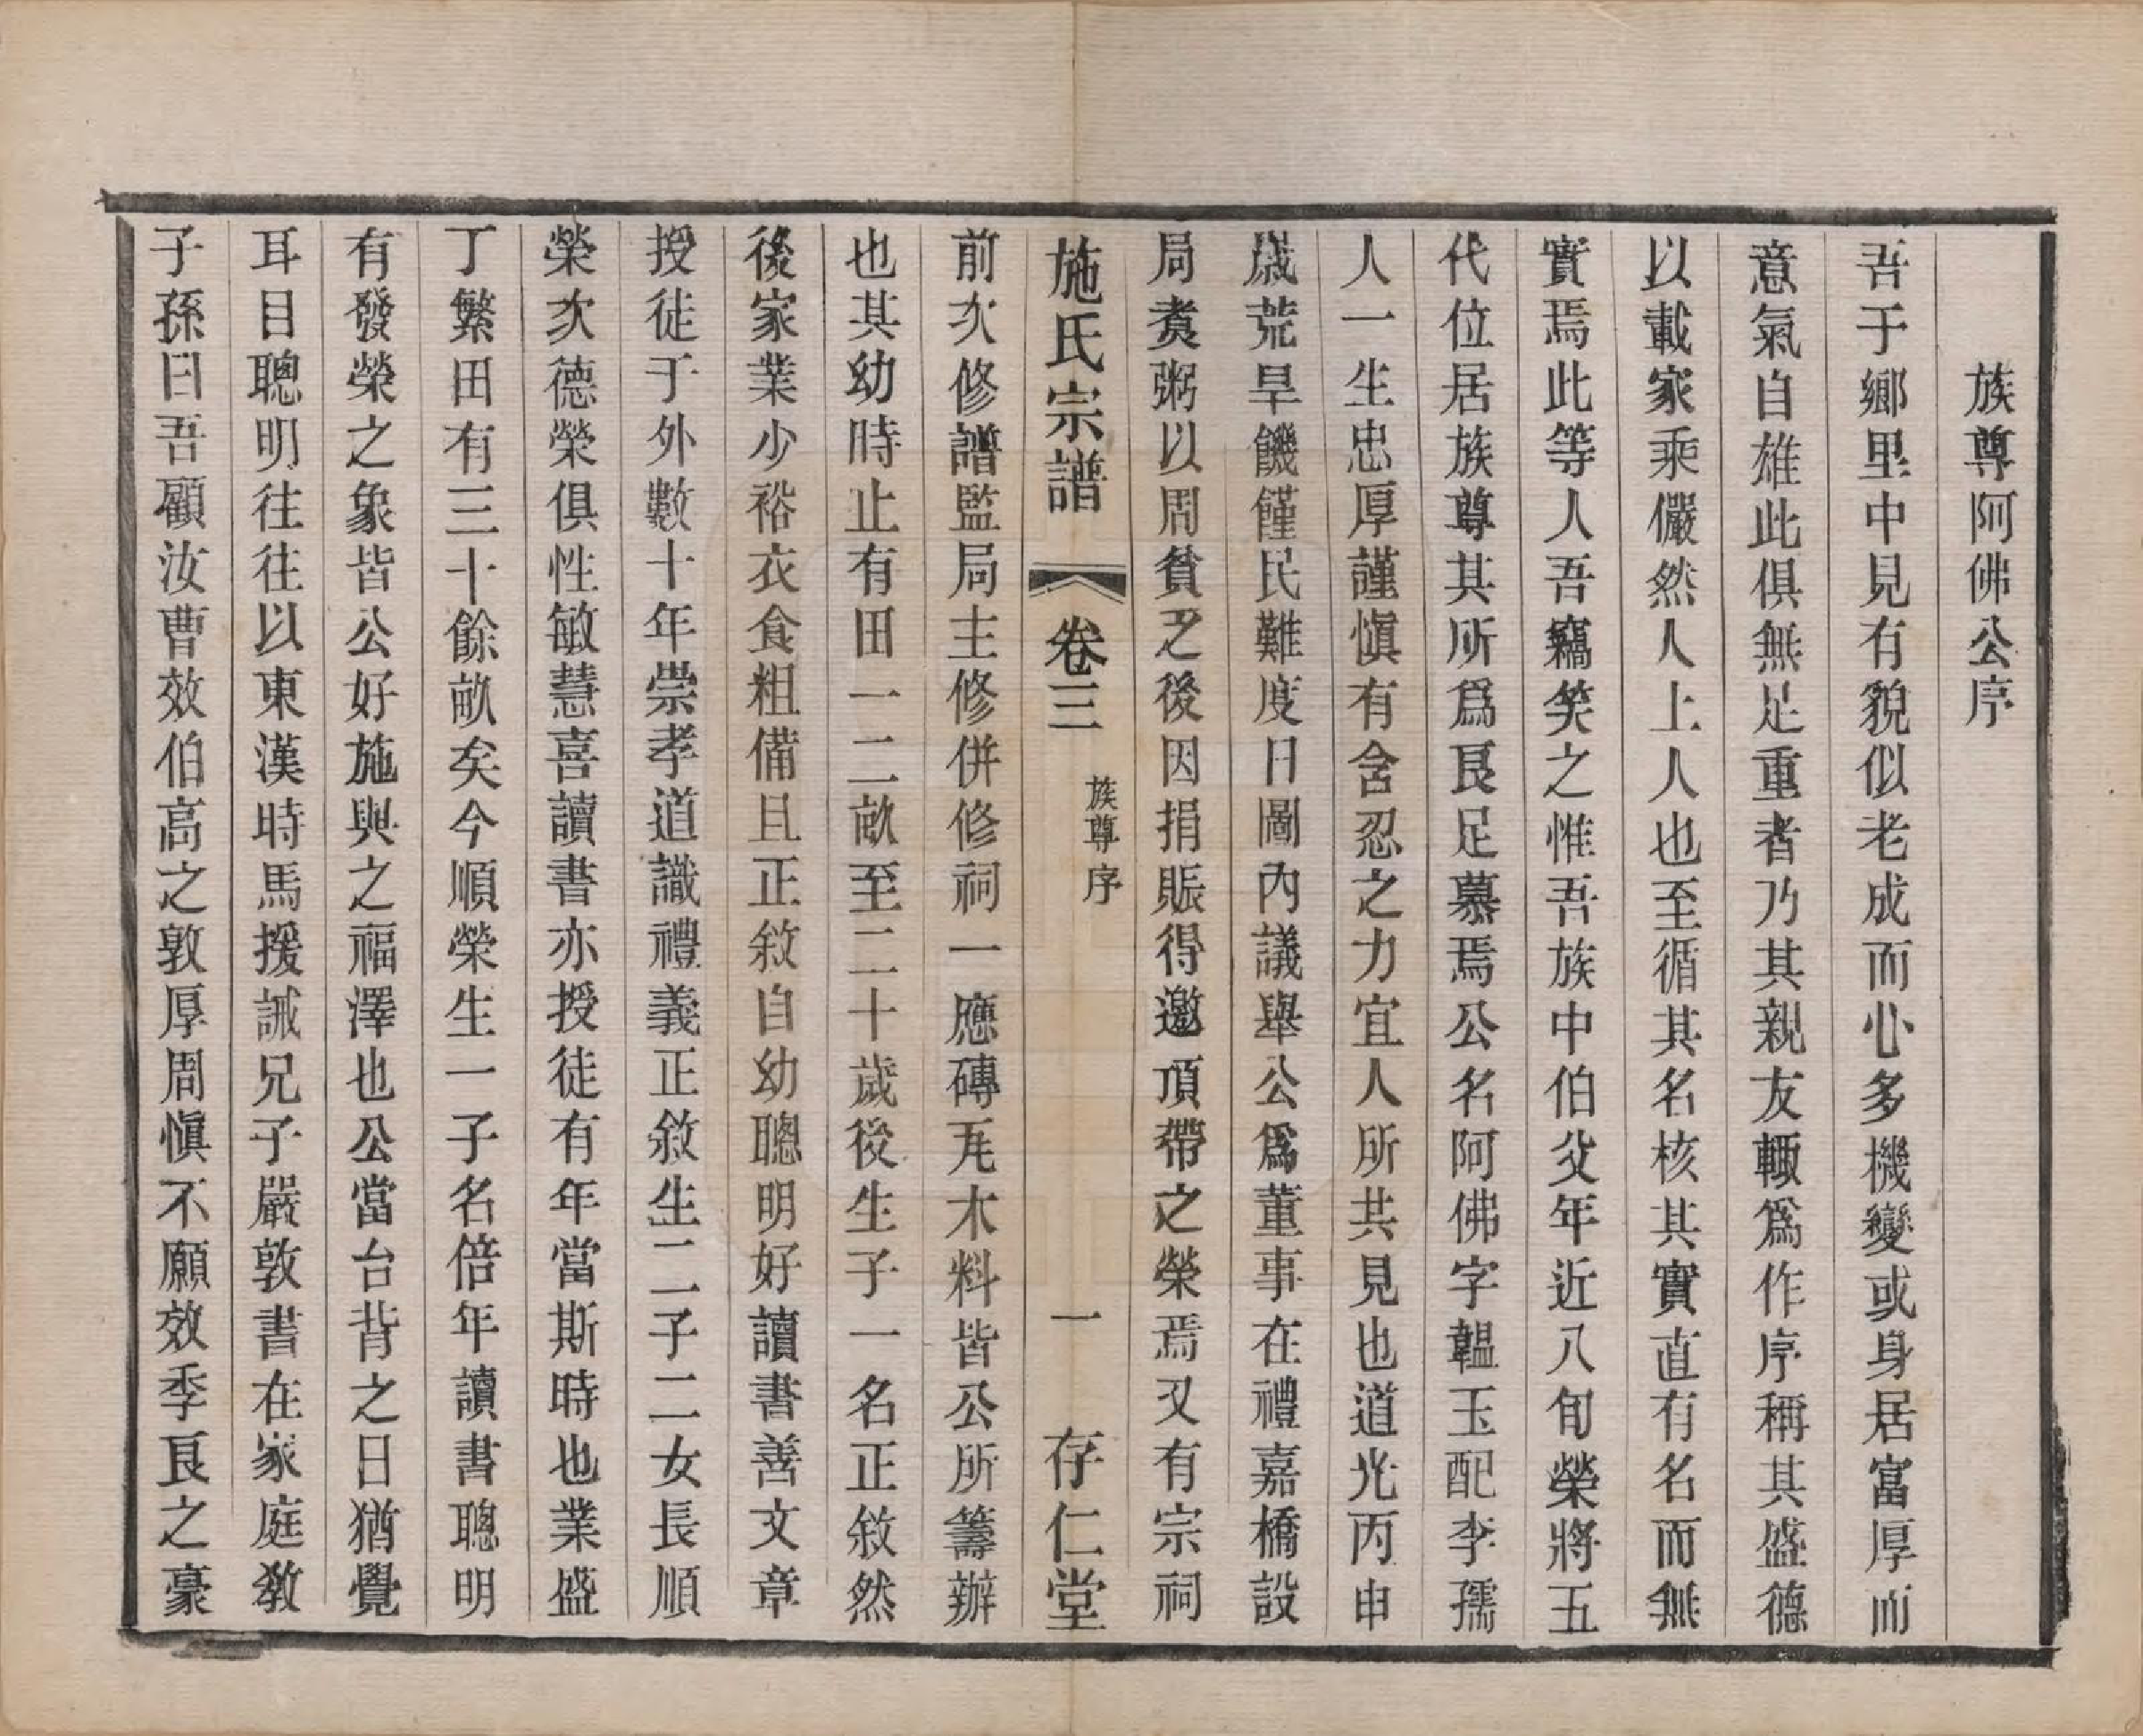 族尊阿佛公序
吾于鄉里中見有貌似老成而心多機變或身居富厚而
意氣自雄此俱無足重者乃其親友輙爲作序稱其盛德
以載家乘儼然人上人也至循其名核其實直有名而無
實焉此等人吾竊笑之惟吾族中伯父年近八旬榮將五
代位居族尊其所爲良足慕焉公名阿佛字韞玉配李孺
人一生忠厚謹慎有含忍之力宜人所共見也道光丙申
歲荒旱饑饉民難度日圖內議舉公爲董事在禮嘉橋設
局煑粥以周貧乏後因捐賑得邀頂帶之榮焉又有宗祠
施氏宗譜 卷三 族尊序 一 存仁堂
前次修譜監局主修併修祠一應磚瓦木料皆公所籌辦
也其幼時止有田一二畝至二十歲後生子一名正敘然
後家業少裕衣食粗備且正敘自幼聰明好讀書善文章
授徒于外數十年崇孝道識禮義正敘生二子二女長順
榮次德榮俱性敏慧喜讀書亦授徒有年當斯時也業盛
丁繁田有三十餘畝矣今順榮生一子名倍年讀書聰明
有發榮之象皆公好施與之福澤也公當台背之日猶覺
耳目聰明往往以東漢時馬援誡兄子嚴敦書在家庭教
子孫曰吾顧汝曹效伯高之敦厚周慎不願效季良之豪